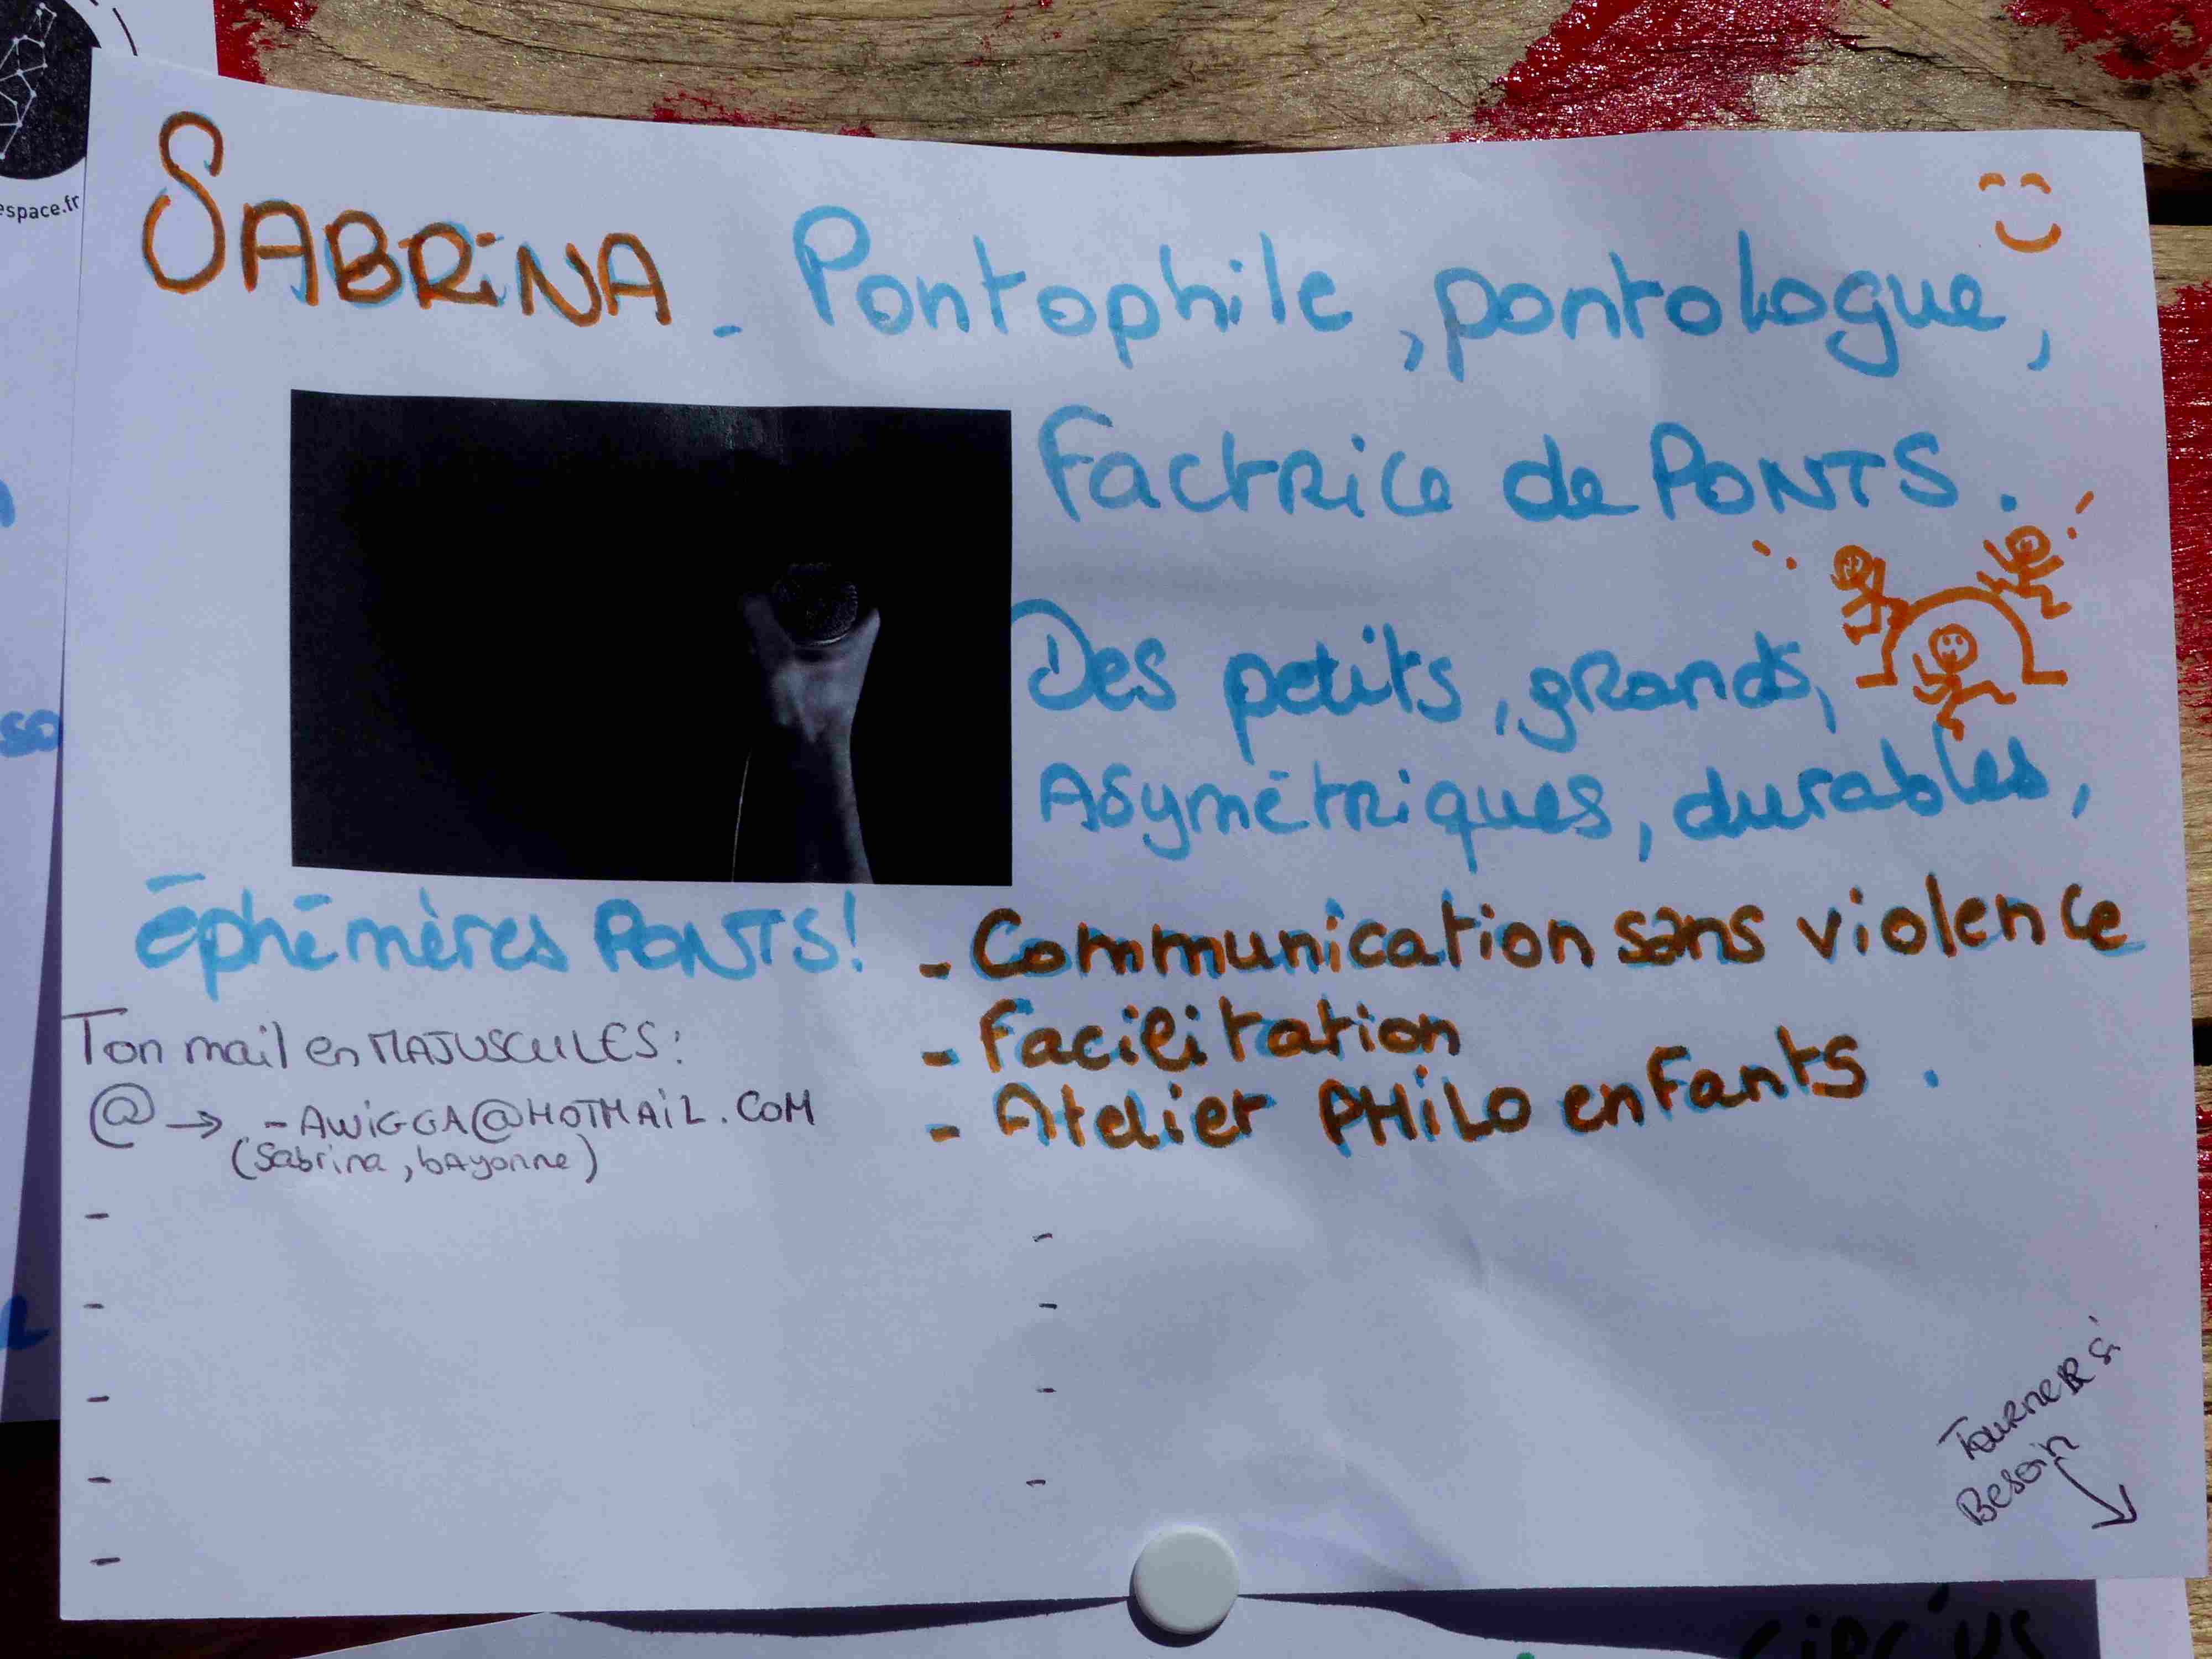 espace.fr
SABRINA - Pontophile, pontologue,
Factrice de PONTS.
Des petits, grands,
Asymétriques, durables,
éphémères PONTS!
- Communication sans violence
- Facilitation
- Atelier PHILO enfants.
Ton mail en MAJUSCULES:
@ → - AWIGGA@HOTMAIL.COM
(Sabrina, bayonne)
Tourner si
Besoin
so